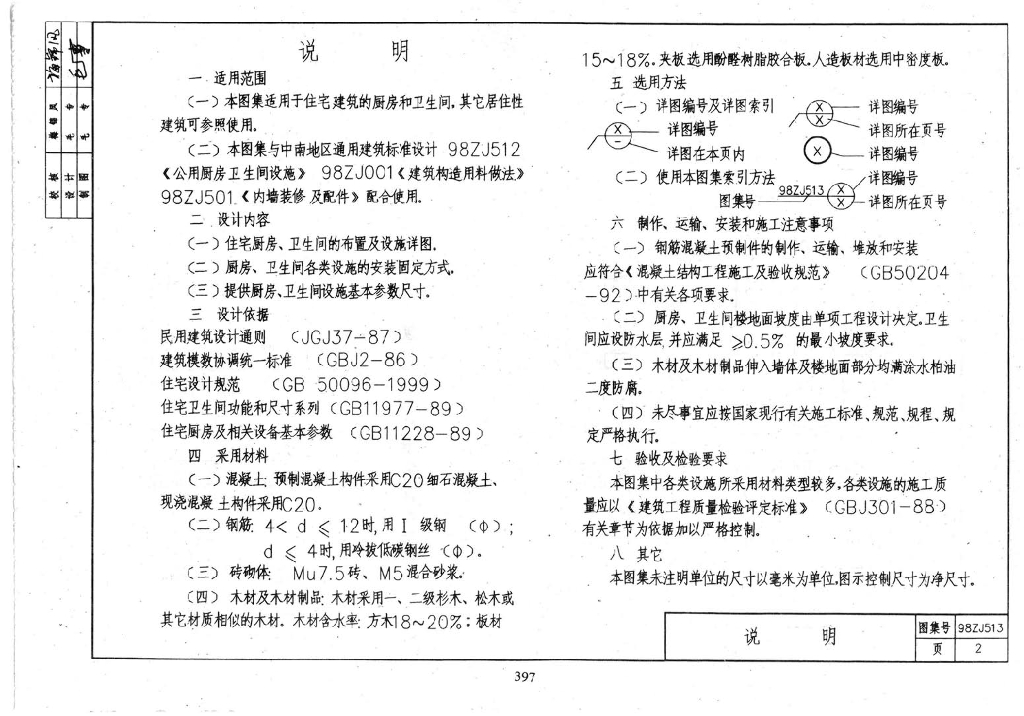 说 明
一 适用范围
(一)本图集适用于住宅建筑的厨房和卫生间,其它居住性
建筑可参照使用.
(二)本图集与中南地区通用建筑标准设计 98ZJ512
《公用厨房卫生间设施》 98ZJ001《建筑构造用料做法》
98ZJ501.《内墙装修及配件》配合使用.
二 设计内容
(一)住宅厨房、卫生间的布置及设施详图.
(二)厨房、卫生间各类设施的安装固定方式.
(三)提供厨房、卫生间设施基本参数尺寸.
三 设计依据
民用建筑设计通则 (JGJ37-87)
建筑模数协调统一标准 (GBJ2-86)
住宅设计规范 (GB 50096-1999)
住宅卫生间功能和尺寸系列(GB11977-89)
住宅厨房及相关设备基本参数 (GB11228-89)
四 采用材料
(一)混凝土: 预制混凝土构件采用C20细石混凝土、
现浇混凝土构件采用C20.
(二)钢筋: 4< d ≤ 12时,用I 级钢 (Φ);
d ≤ 4时,用冷拔低碳钢丝(Φ).
(三) 砖砌体: Mu7.5砖、M5混合砂浆.
(四) 木材及木材制品: 木材采用一、二级杉木、松木或
其它材质相似的木材. 木材含水率: 方木18~20%;板材
15~18%.夹板选用酚醛树脂胶合板.人造板材选用中密度板.
五 选用方法
(一)详图编号及详图索引
X 详图编号
X 详图所在页号
X 详图编号
- 详图在本页内
X 详图编号
(二) 使用本图集索引方法
图集号 98ZJ513
X 详图编号
X 详图所在页号
六 制作、运输、安装和施工注意事项
(一) 钢筋混凝土预制件的制作、运输、堆放和安装
应符合《混凝土结构工程施工及验收规范》 (GB50204
-92)中有关各项要求.
(二) 厨房、卫生间楼地面坡度由单项工程设计决定.卫生
间应设防水层,并应满足 ≥0.5% 的最小坡度要求.
(三) 木材及木材制品伸入墙体及楼地面部分均满涂水柏油
二度防腐.
(四) 未尽事宜应按国家现行有关施工标准、规范、规程、规
定严格执行.
七 验收及检验要求
本图集中各类设施所采用材料类型较多,各类设施的施工质
量应以《建筑工程质量检验评定标准》 (GBJ301-88)
有关章节为依据加以严格控制.
八 其它
本图集未注明单位的尺寸以毫米为单位,图示控制尺寸为净尺寸.
说 明
图集号 98ZJ513
页 2
校核
设计
制图
397